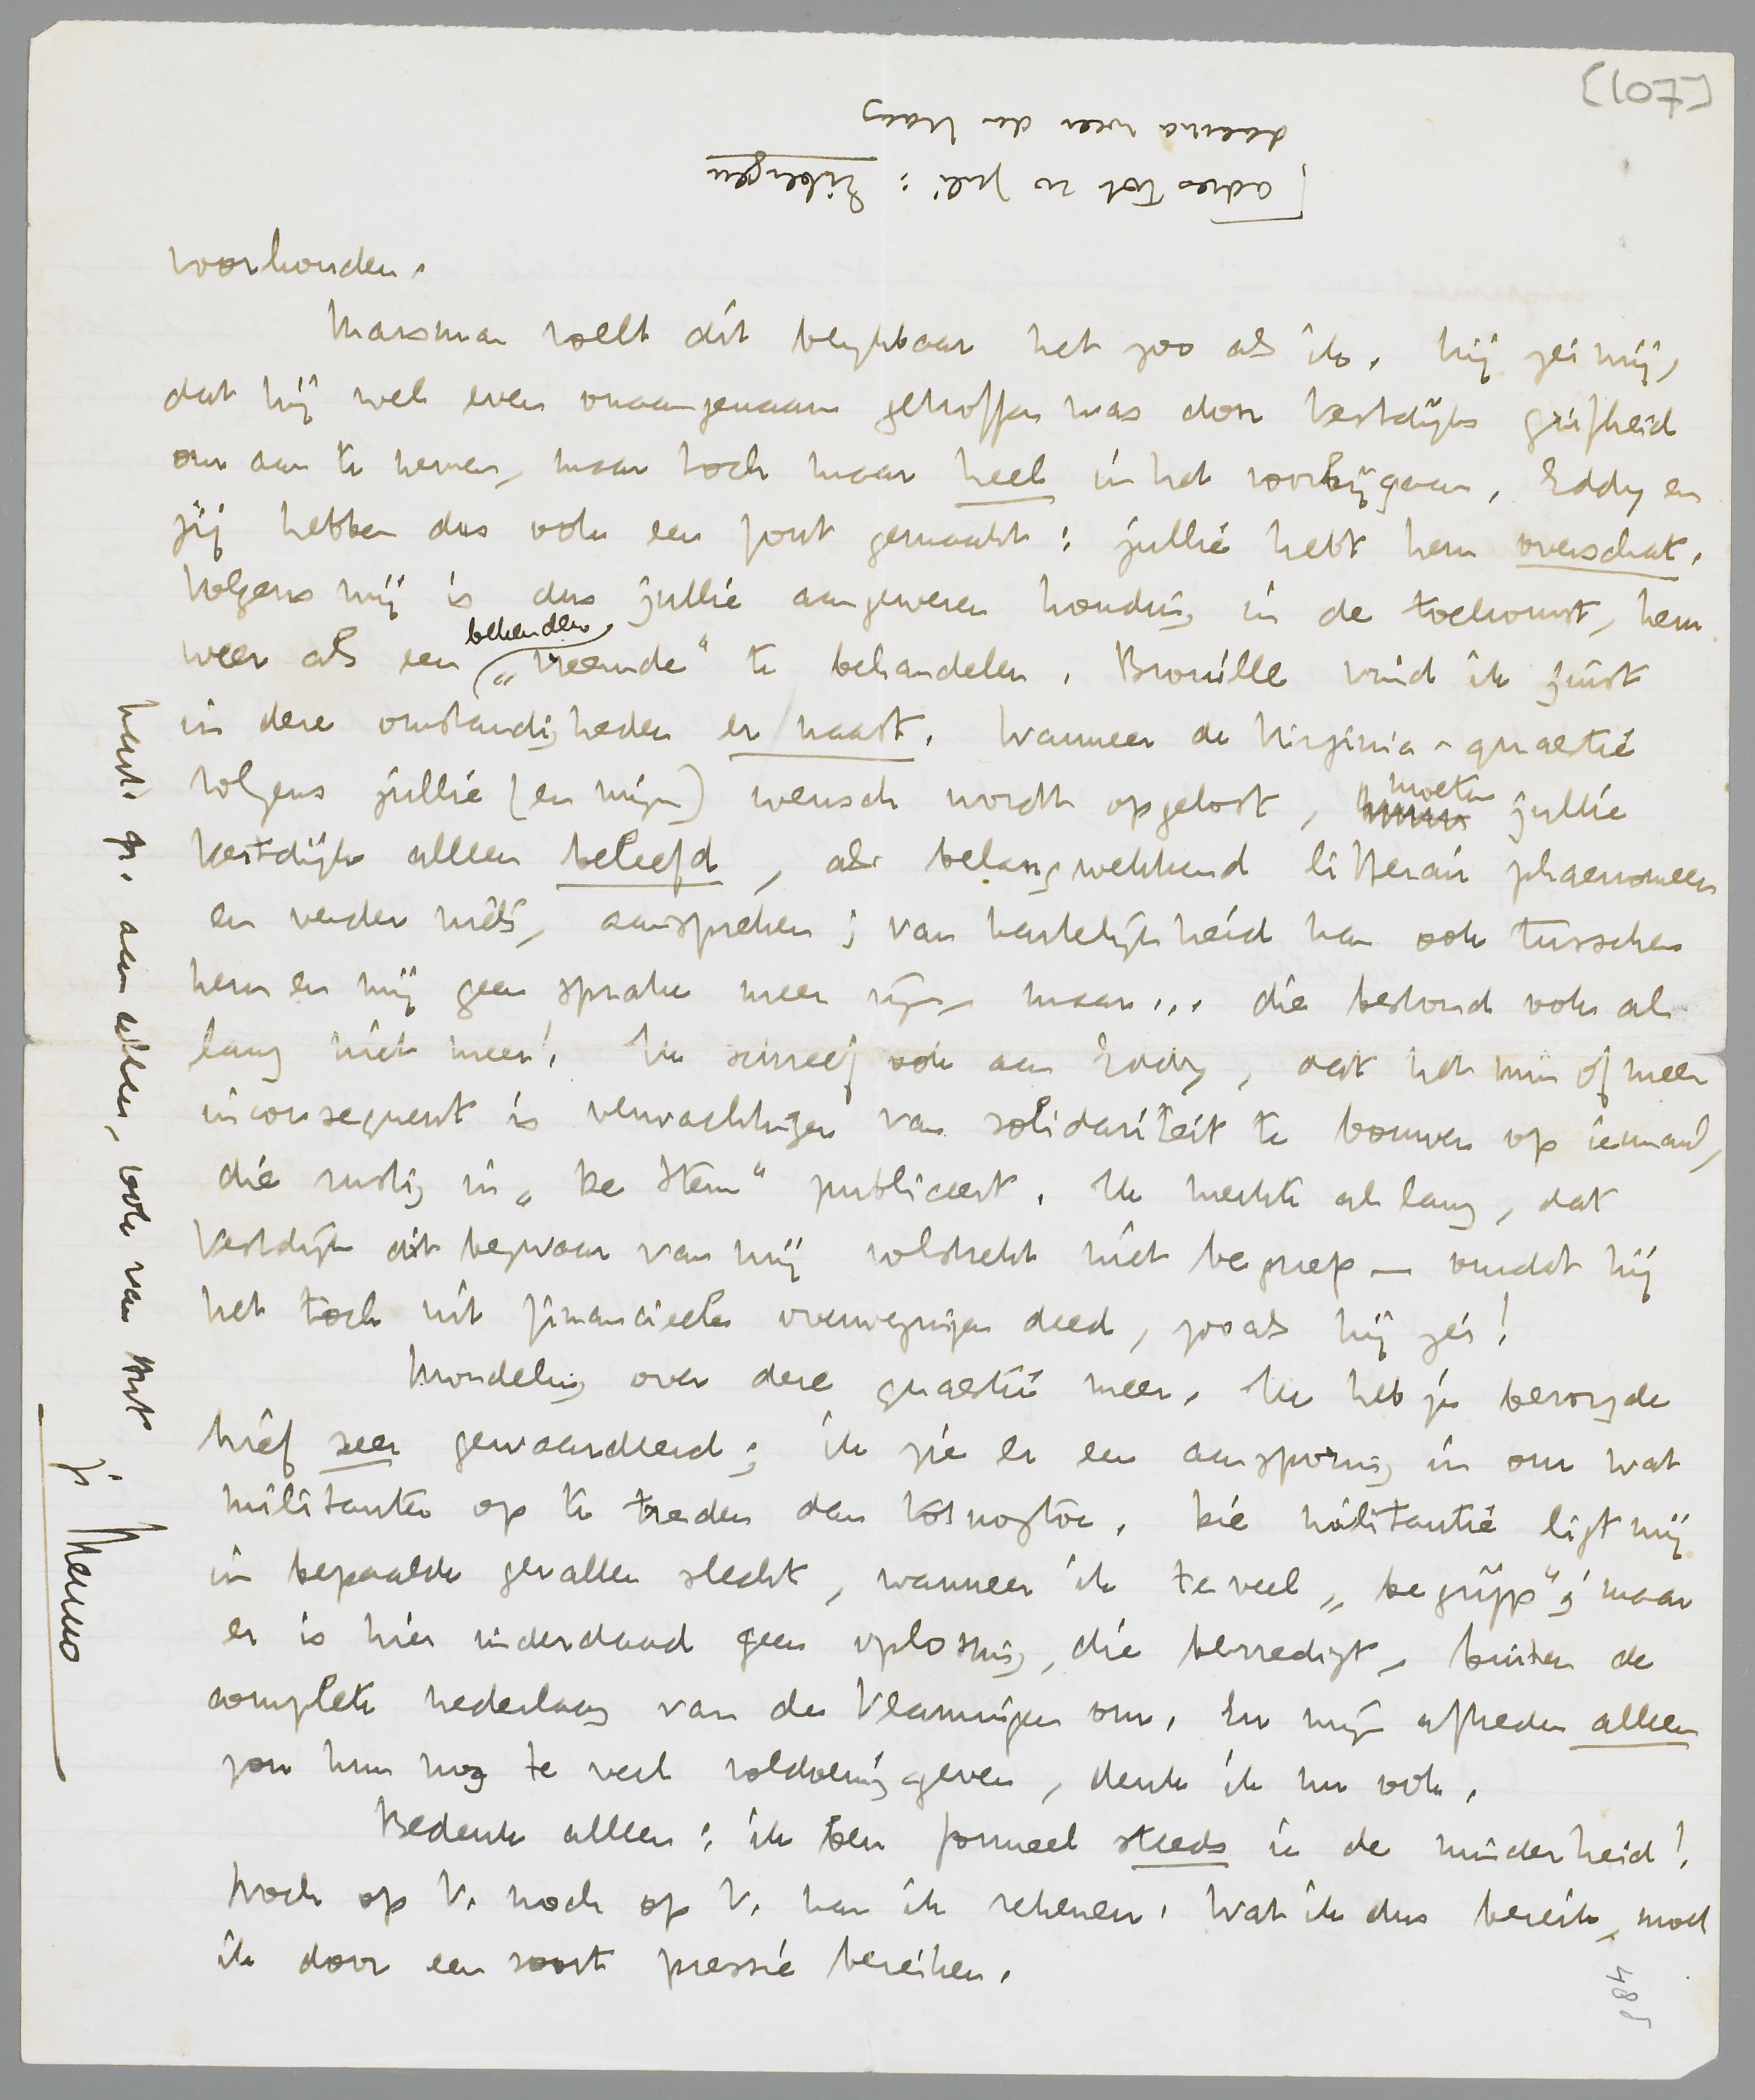 [107]
[adres tot 20 Juli: Eibergen
daarna weer den Haag
voorhouden.
Marsman voelt dit blijkbaar net zoo als ik. Hij zei mij,
dat hij wel even onaangenaam getroffen was door Vestdijks grifheid
om aan te nemen, maar toch maar heel in het voorbijgaan. Eddy en
jij hebben dus ook een fout gemaakt: jullie hebt hem overschat.
Volgens mij is dus jullie aangewezen houding in de toekomst, hem
weer als een bekenden „vreemde” te behandelen. Brouille vind ik juist
in deze omstandigheden er naast. Wanneer de Virginia-quaestie
volgens jullie (en mijn) wensch wordt opgelost, moeten jullie
Vestdijk alleen beleefd, als belangwekkend litterair phaenomeen
en verder niets, aanspreken; van hartelijkheid kan ook tusschen
hem en mij geen sprake meer zijn, maar... die bestond ook al
lang niet meer! Ik schreef ook aan Eddy, dat het min of meer
inconsequent is verwachtingen van solidariteit te bouwen op iemand,
die rustig in „De Stem” publiceert. Ik merkte al lang, dat
Vestdijk dit bezwaar van mij volstrekt niet begreep — omdat hij
het toch uit financieele overwegingen deed, zooals hij zei!
Mondeling over deze quaestie meer. Ik heb je bezorgde
brief zeer gewaardeerd; ik zie er een aansporing in om wat
militanter op te treden dan tot nog toe. Die militantie ligt mij
in bepaalde gevallen slecht, wanneer ik te veel „begrijp”; maar
er is hier inderdaad geen oplossing, die bevredigt, buiten de
complete nederlaag van de Vlamingen om. En mijn aftreden alleen
zou hun nog te veel voldoening geven, denk ik nu ook.
Bedenk alleen: ik ben formeel steeds in de minderheid!
Noch op V. noch op V. kan ik rekenen. Wat ik dus bereik, moet
ik door een soort pressie bereiken.
hart. gr. aan allen, ook van Ant
je Menno
485